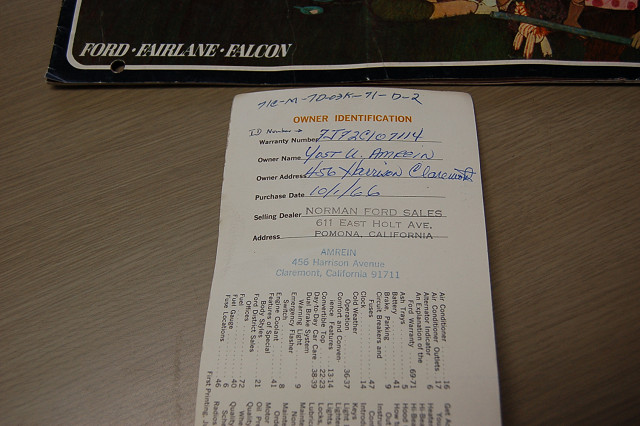 FORD · FAIRLANE · FALCON
71C-M-70-03K-71-D-2
OWNER IDENTIFICATION
ID Number →
Warranty Number 7J72C107114
Owner Name YOST U. AMREIN
Owner Address 456 Harrison Claremont
Purchase Date 10/1/66
Selling Dealer NORMAN FORD SALES
611 EAST HOLT AVE.
Address POMONA, CALIFORNIA
AMREIN
456 Harrison Avenue
Claremont, California 91711
Air Conditioner 16
Air Conditioner Outlets 17
Alternator Indicator 6
An Explanation of the
Ford Warranty 69-71
Ash Trays 5
Battery 41
Brake, Parking 9
Circuit Breakers and
Fuses 47
Clock 14
Cold Weather
Operation 36-37
Comfort and Conven-
ience Features 13-14
Convertible Top 22-23
Day-to-Day Car Care 38-39
Dual Brake System
Warning Light 9
Emergency Flasher
Switch 8
Engine Coolant 41
Features of Special
Body Styles 21
Ford District Sales
Offices 72
Fuel
Fuel Gauge 40
Fuse Locations 46
First Printing,